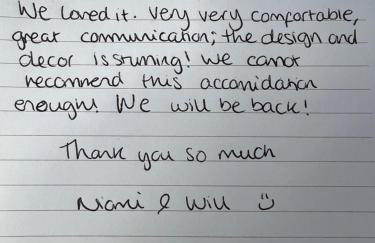 We loved it. Very very comfortable,
great communication; the design and
decor is stunning! We cannot
recommend this accomidation
enough! We will be back!
Thank you so much
Niomi & Will ☺